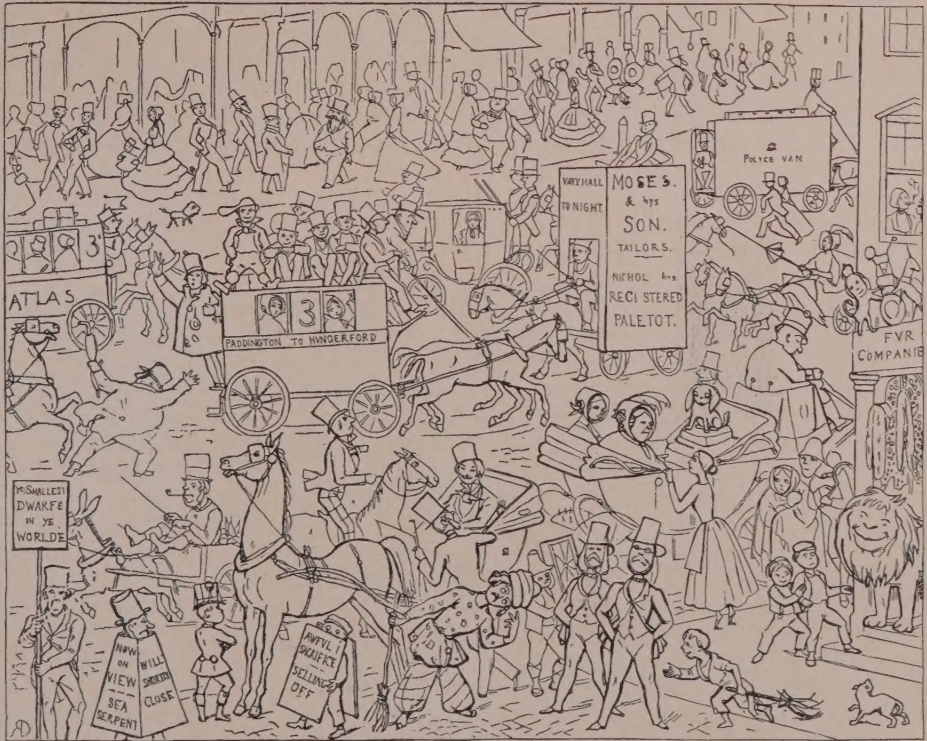 POLICE VAN
VAUXHALL
TO NIGHT
MOSES.
& hys
SON.
TAILORS.
NICHOL hys
REGISTERED
PALETOT.
3
ATLAS
3
PADDINGTON TO HUNGERFORD
FVR
COMPANIE
Ye SMALLEST
DWARFE
IN YE
WORLDE
NOW
ON
VIEW
SEA
SERPENT
WILL
SHORTLY
CLOSE
AWFVL
SACRIFICE
SELLING
OFF
RD